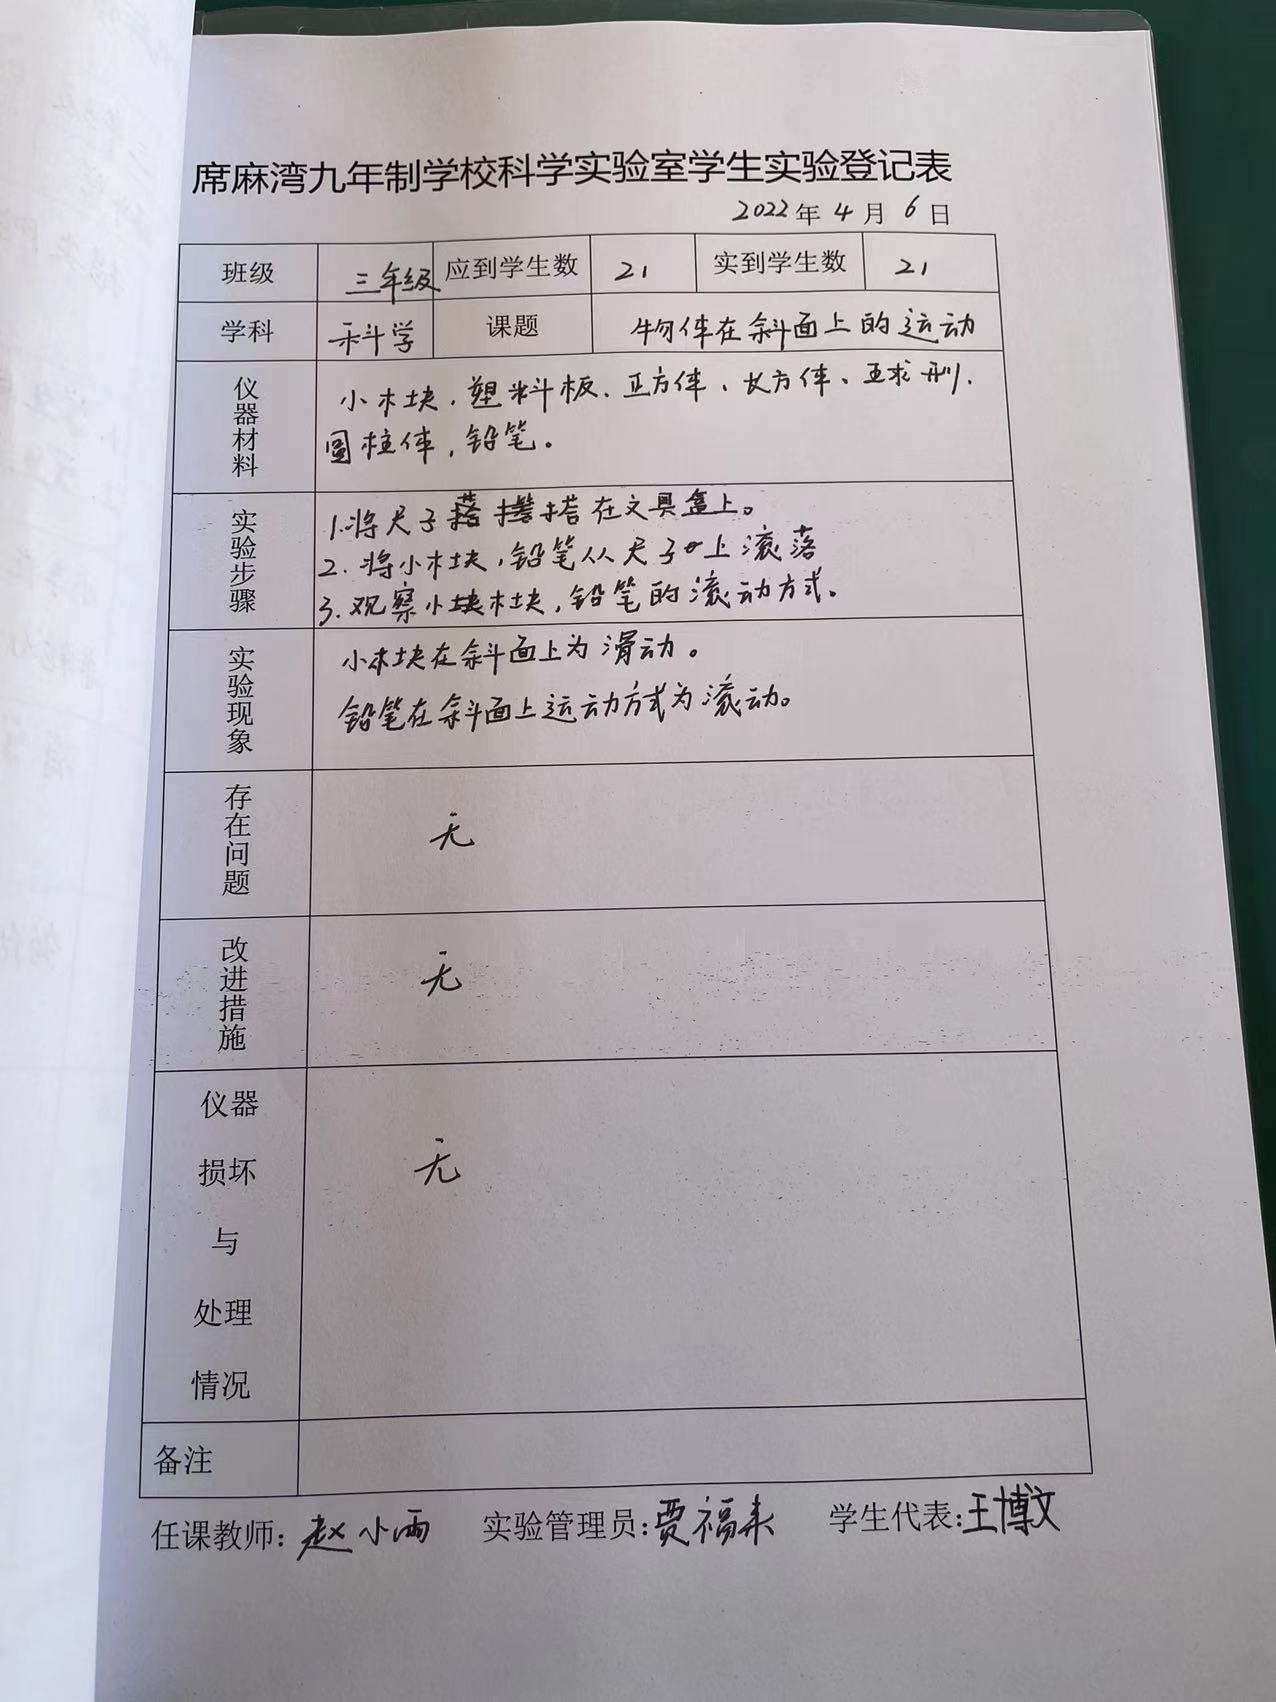 席麻湾九年制学校科学实验室学生实验登记表
2022年4月6日
班级 三年级 应到学生数 21 实到学生数 21
学科 科学 课题 物体在斜面上的运动
仪器材料
小木块、塑料板、正方体、长方体、球形、
圆柱体，铅笔。
实验步骤
1.将尺子搭在文具盒上。
2.将小木块，铅笔从尺子上滚落
3.观察小木块，铅笔的滚动方式。
实验现象
小木块在斜面上为滑动。
铅笔在斜面上运动方式为滚动。
存在问题
无
改进措施
无
仪器
损坏
无
与
处理
情况
备注
任课教师：赵小雨 实验管理员：贾福来 学生代表：王博文